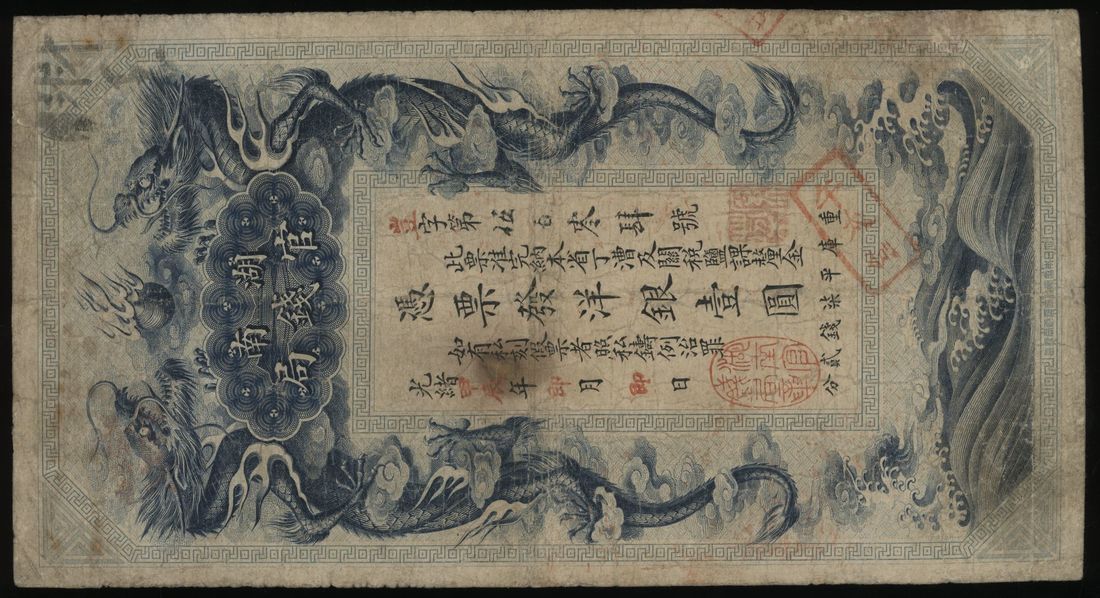 湖南官錢局
壹字第伍百零肆號
此票准完納本省丁漕及關稅鹽課釐金
憑票發洋銀壹圓
如有私刻假票者照私鑄例治罪
光緒甲辰年月日
重庫平柒錢貳分